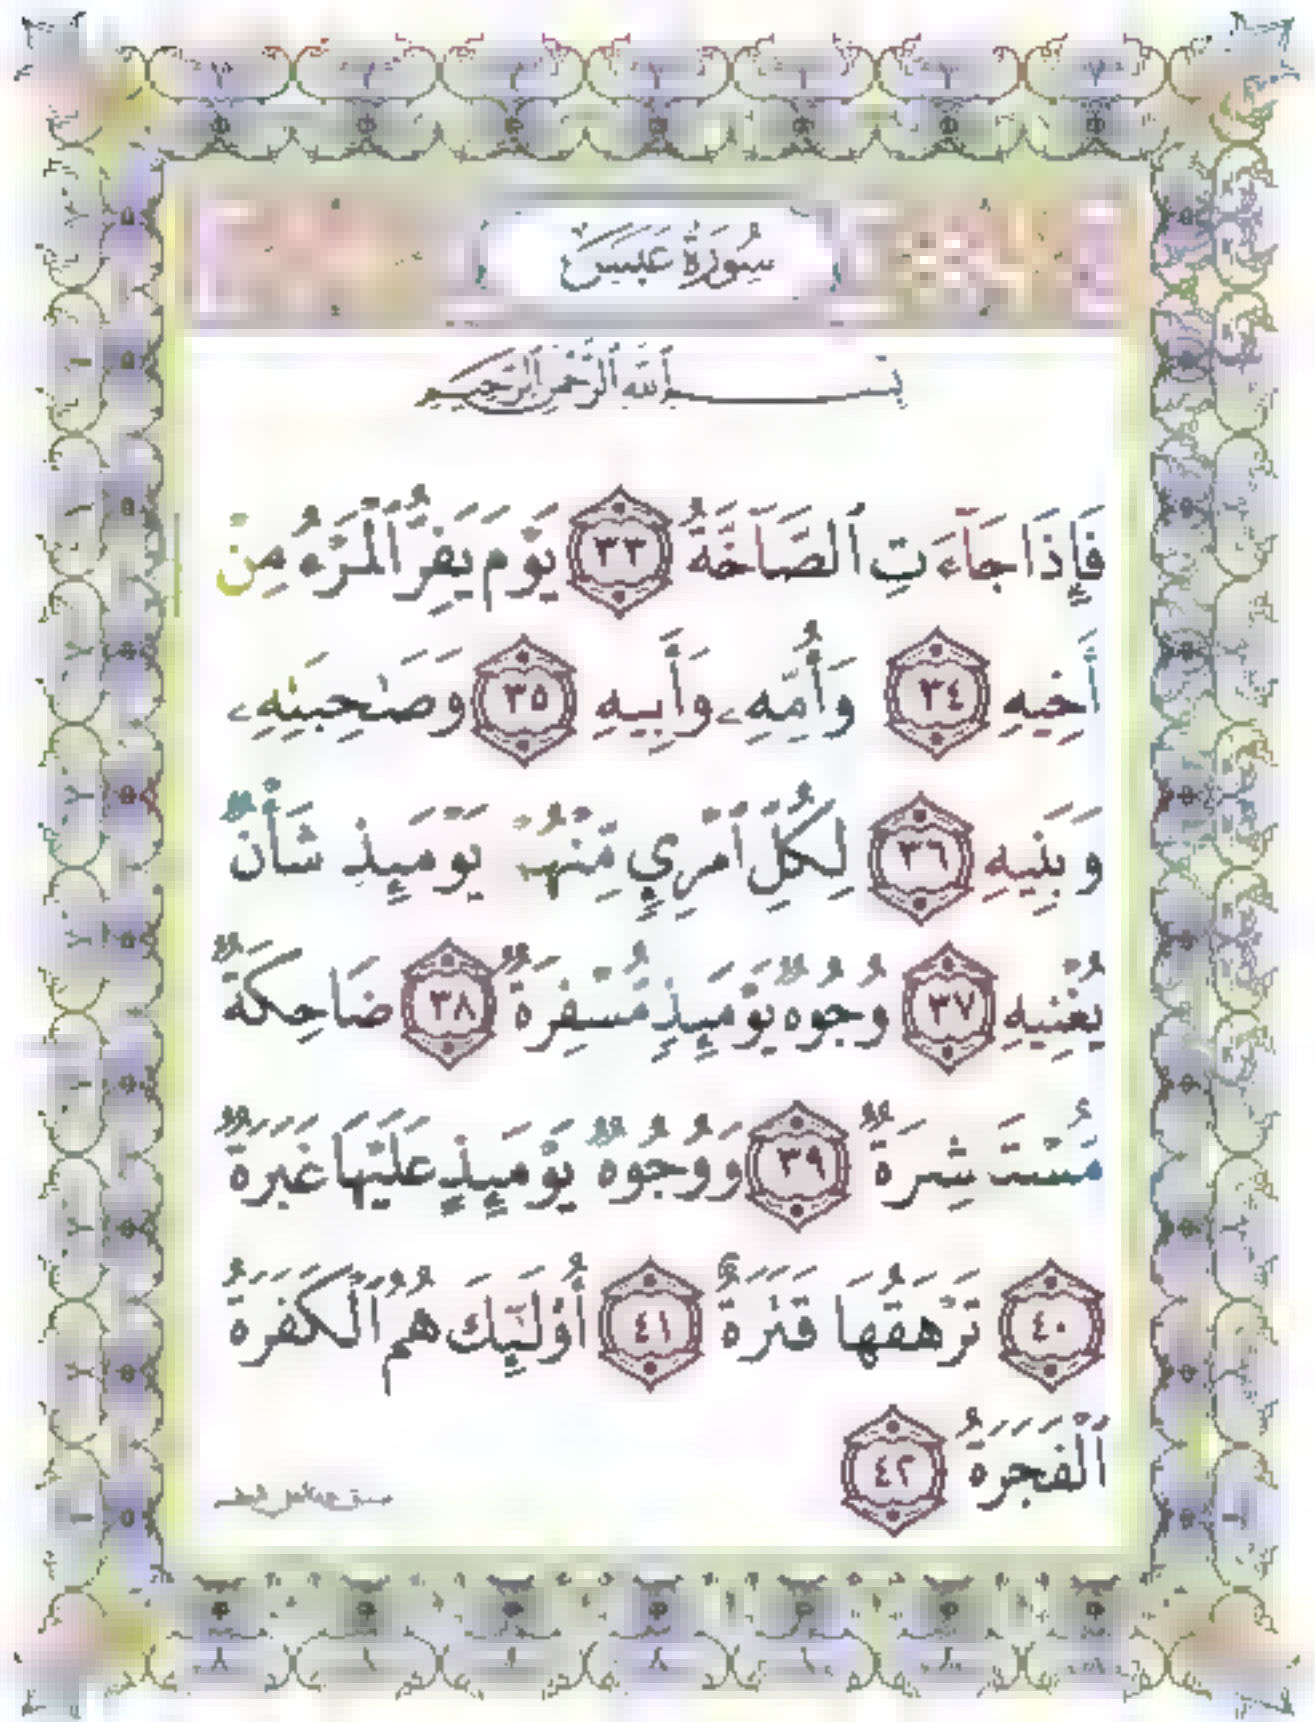 سُورَةُ عَبَسَ
بِسْمِ ٱللَّهِ ٱلرَّحْمَٰنِ ٱلرَّحِيمِ
فَإِذَا جَآءَتِ ٱلصَّآخَّةُ ٣٣ يَوْمَ يَفِرُّ ٱلْمَرْءُ مِنْ
أَخِيهِ ٣٤ وَأُمِّهِۦ وَأَبِيهِ ٣٥ وَصَٰحِبَتِهِۦ
وَبَنِيهِ ٣٦ لِكُلِّ ٱمْرِئٍ مِّنْهُمْ يَوْمَئِذٍ شَأْنٌ
يُغْنِيهِ ٣٧ وُجُوهٌ يَوْمَئِذٍ مُّسْفِرَةٌ ٣٨ ضَاحِكَةٌ
مُّسْتَبْشِرَةٌ ٣٩ وَوُجُوهٌ يَوْمَئِذٍ عَلَيْهَا غَبَرَةٌ
٤٠ تَرْهَقُهَا قَتَرَةٌ ٤١ أُو۟لَٰٓئِكَ هُمُ ٱلْكَفَرَةُ
ٱلْفَجَرَةُ ٤٢